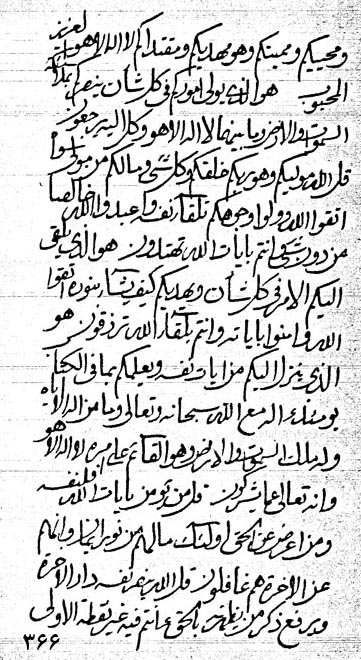 ومحييكم ومميتكم وهو مهديكم ومقتداكم لا اله الا هو العزيز
المحبوب هو الذي يولى اموركم في كل شأن ينصركم بملائكة
السموات والارض وما بينهما لا اله الا هو وكل اليه يرجعون
قل الله موليكم وهو ربكم خلقكم وكل شيء ومالكم من مولى
اتقوا الله وولوا وجوهكم تلقاء نفسه وكل عبد والله خالصا
من دون شيء انتم بايات الله تهتدون هو الذي يلقى
اليكم الامر في كل شأن ويهديكم كيف يشاء بنوره اتقوا
الله وامنوا باياته وانتم بلقاء الله ترزقون هو
الذي ينزل اليكم من ايات نفسه ويعلمكم بما في الكتاب
يومئذ ءاله مع الله سبحانه وتعالى وما من اله الا اياه
وله ملك السموات والارض وهو القائم على امره لا اله الا هو
وانه تعالى عما يشركون قل من يؤمن بايات الله فلنفسه
ومن اعرض عن الحق اولئك مالهم من نور ايمان وانهم
عن الاخرة هم غافلون قل الله يعرف نفسه دار الاخرة
ويرفع ذكر من يظهر بالحق عما انتم فيه غير نقطه الاولى
٣٦٦